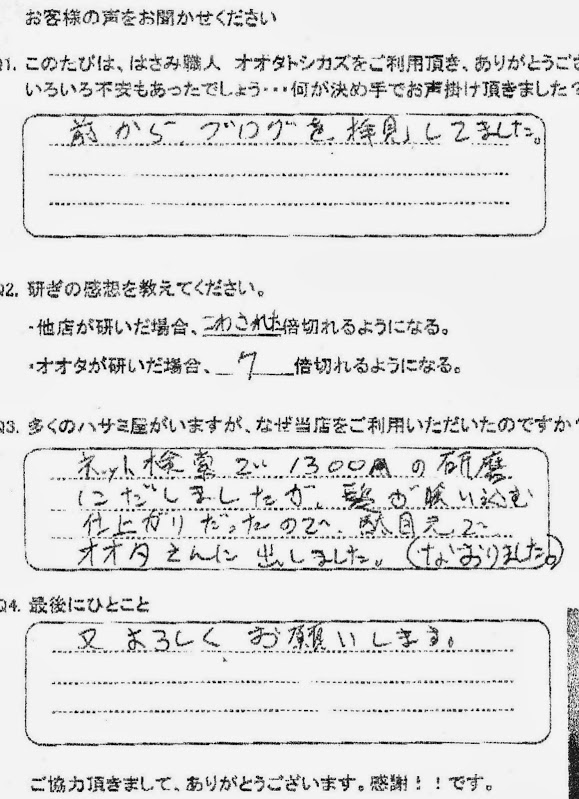 お客様の声をお聞かせください
Q1. このたびは、はさみ職人 オオタトシカズをご利用頂き、ありがとうござ
いろいろ不安もあったでしょう・・・何が決め手でお声掛け頂きました?
前から、ブログを、拝見してました。
Q2. 研ぎの感想を教えてください。
・他店が研いだ場合、こわされた倍切れるようになる。
・オオタが研いだ場合、7倍切れるようになる。
Q3. 多くのハサミ屋がいますが、なぜ当店をご利用いただいたのですか?
ネット検索で 1300円の研磨
にだしましたが、髪が吸い込む
仕上がりだったので、駄目元で
オオタさんに出しました。(なおりました。)
Q4. 最後にひとこと
又よろしくお願いします。
ご協力頂きまして、ありがとうございます。感謝!!です。